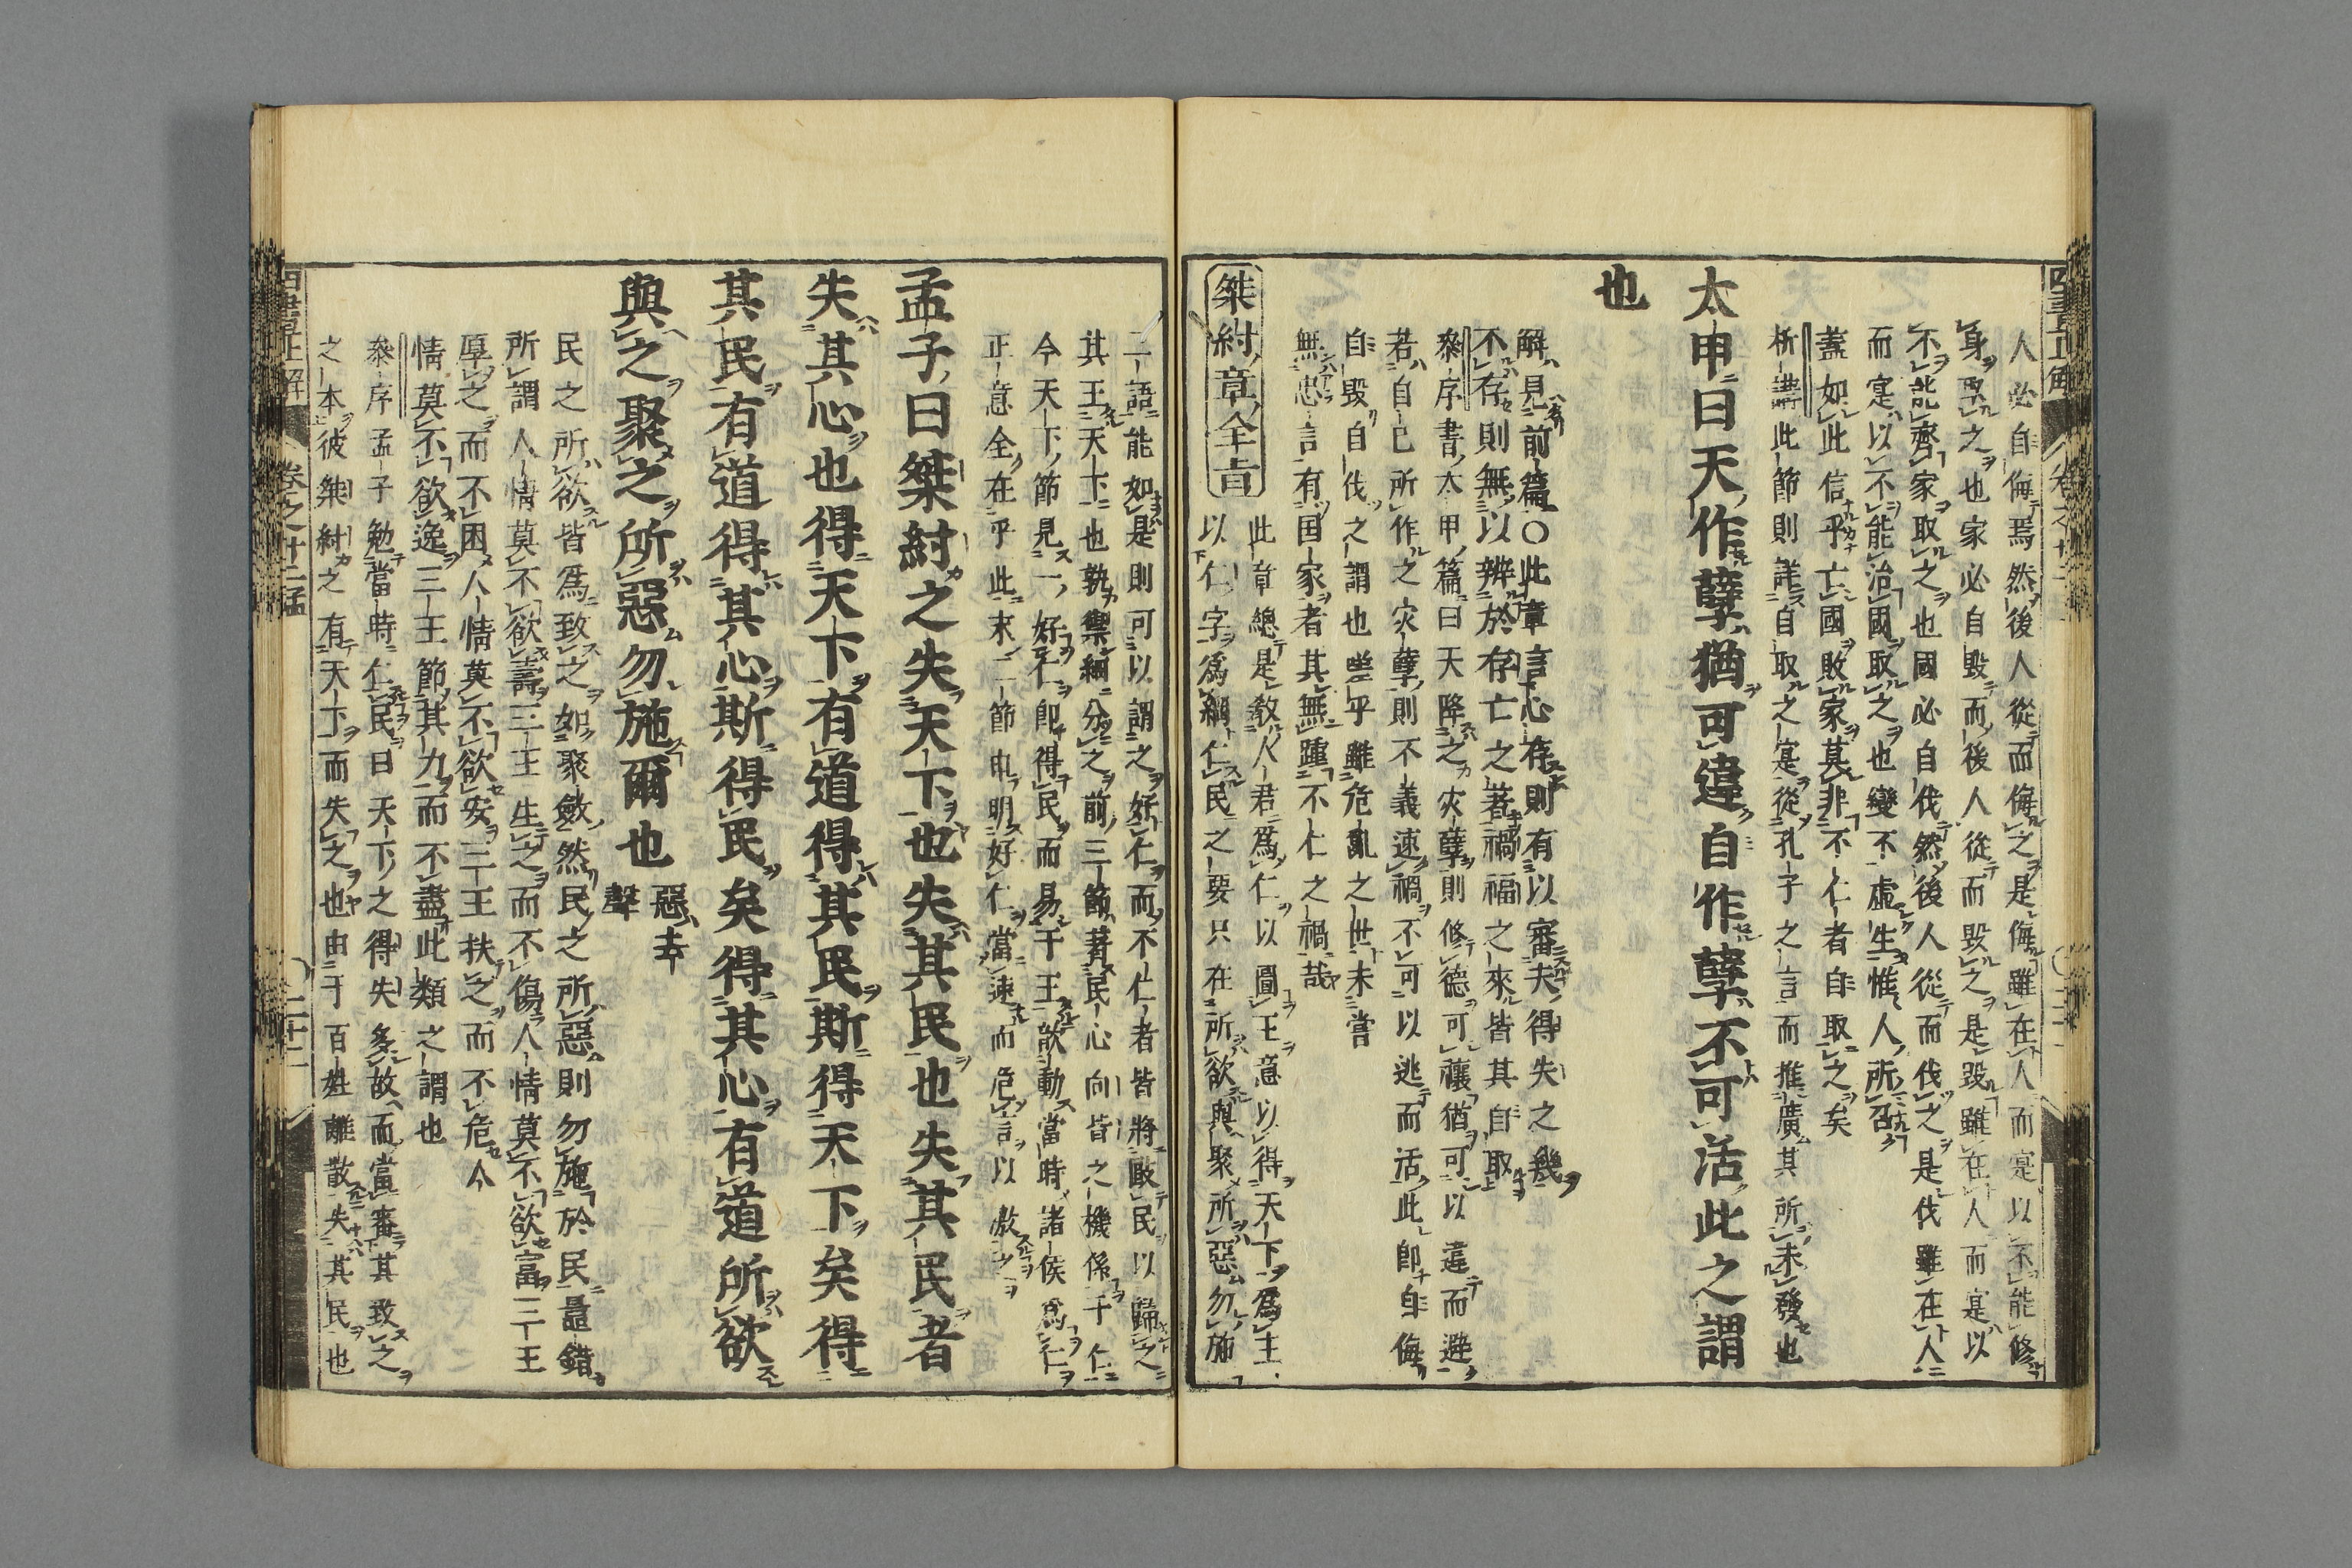 人必自侮焉然後人從而侮之是侮雖在人而寔以不能修
身取之也家必自毀而後人從而毀之是毀雖在人而寔以
不能齊家取之也國必自伐然後人從而伐之是伐雖在人
而寔以不能治國取之也變不虛生惟人所召
蓋如此信乎亡國敗家莫非不仁者自取之矣
析講此節則詳自取之寔從孔子之言而推廣其所未發也
太甲曰天作孽猶可違自作孽不可活此之謂
也
解見前篇○此章言心存則有以審夫得失之幾
不存則無以辨於存亡之著禍福之來皆其自取
叅序書太甲篇曰天降之灾孽則修德可禳猶可以違而避
若自已所作之灾孽則不義速禍不可以逃而活此即自侮
自毀自伐之謂也豈乎雖危亂之世未嘗
無忠言有国家者其無踵不仁之禍哉
桀紂章全旨
此章總是敎人君爲仁以圖王意以得天下爲主
以仁字爲綱仁民之要只在所欲與聚所惡勿施
二語能如是則可以謂之好仁而不仁者皆將敺民以歸之
其王天下也孰禦綱分之前三節著民心向皆之機係于仁
今天下節見一好仁即得民而易于王歆動當時諸侯爲仁
正意全在乎此末二節申明好仁當速而危言以激之
孟子曰桀紂之失天下也失其民也失其民者
失其心也得天下有道得其民斯得天下矣得
其民有道得其心斯得民矣得其心有道所欲
與之聚之所惡勿施爾也
惡去
聲
民之所欲皆爲致之如聚斂然民之所惡則勿施於民鼂錯
所謂人情莫不欲壽三王生之而不傷人情莫不欲富三王
厚之而不困人情莫不欲安三王扶之而不危人
情莫不欲逸三王節其力而不盡此類之謂也
叅序孟子勉當時仁民曰天下之得失多故而當審其致之
之本彼桀紂之有天下而失之也由于百姓離散失其民也
四書正解
卷之十二孟
二十二